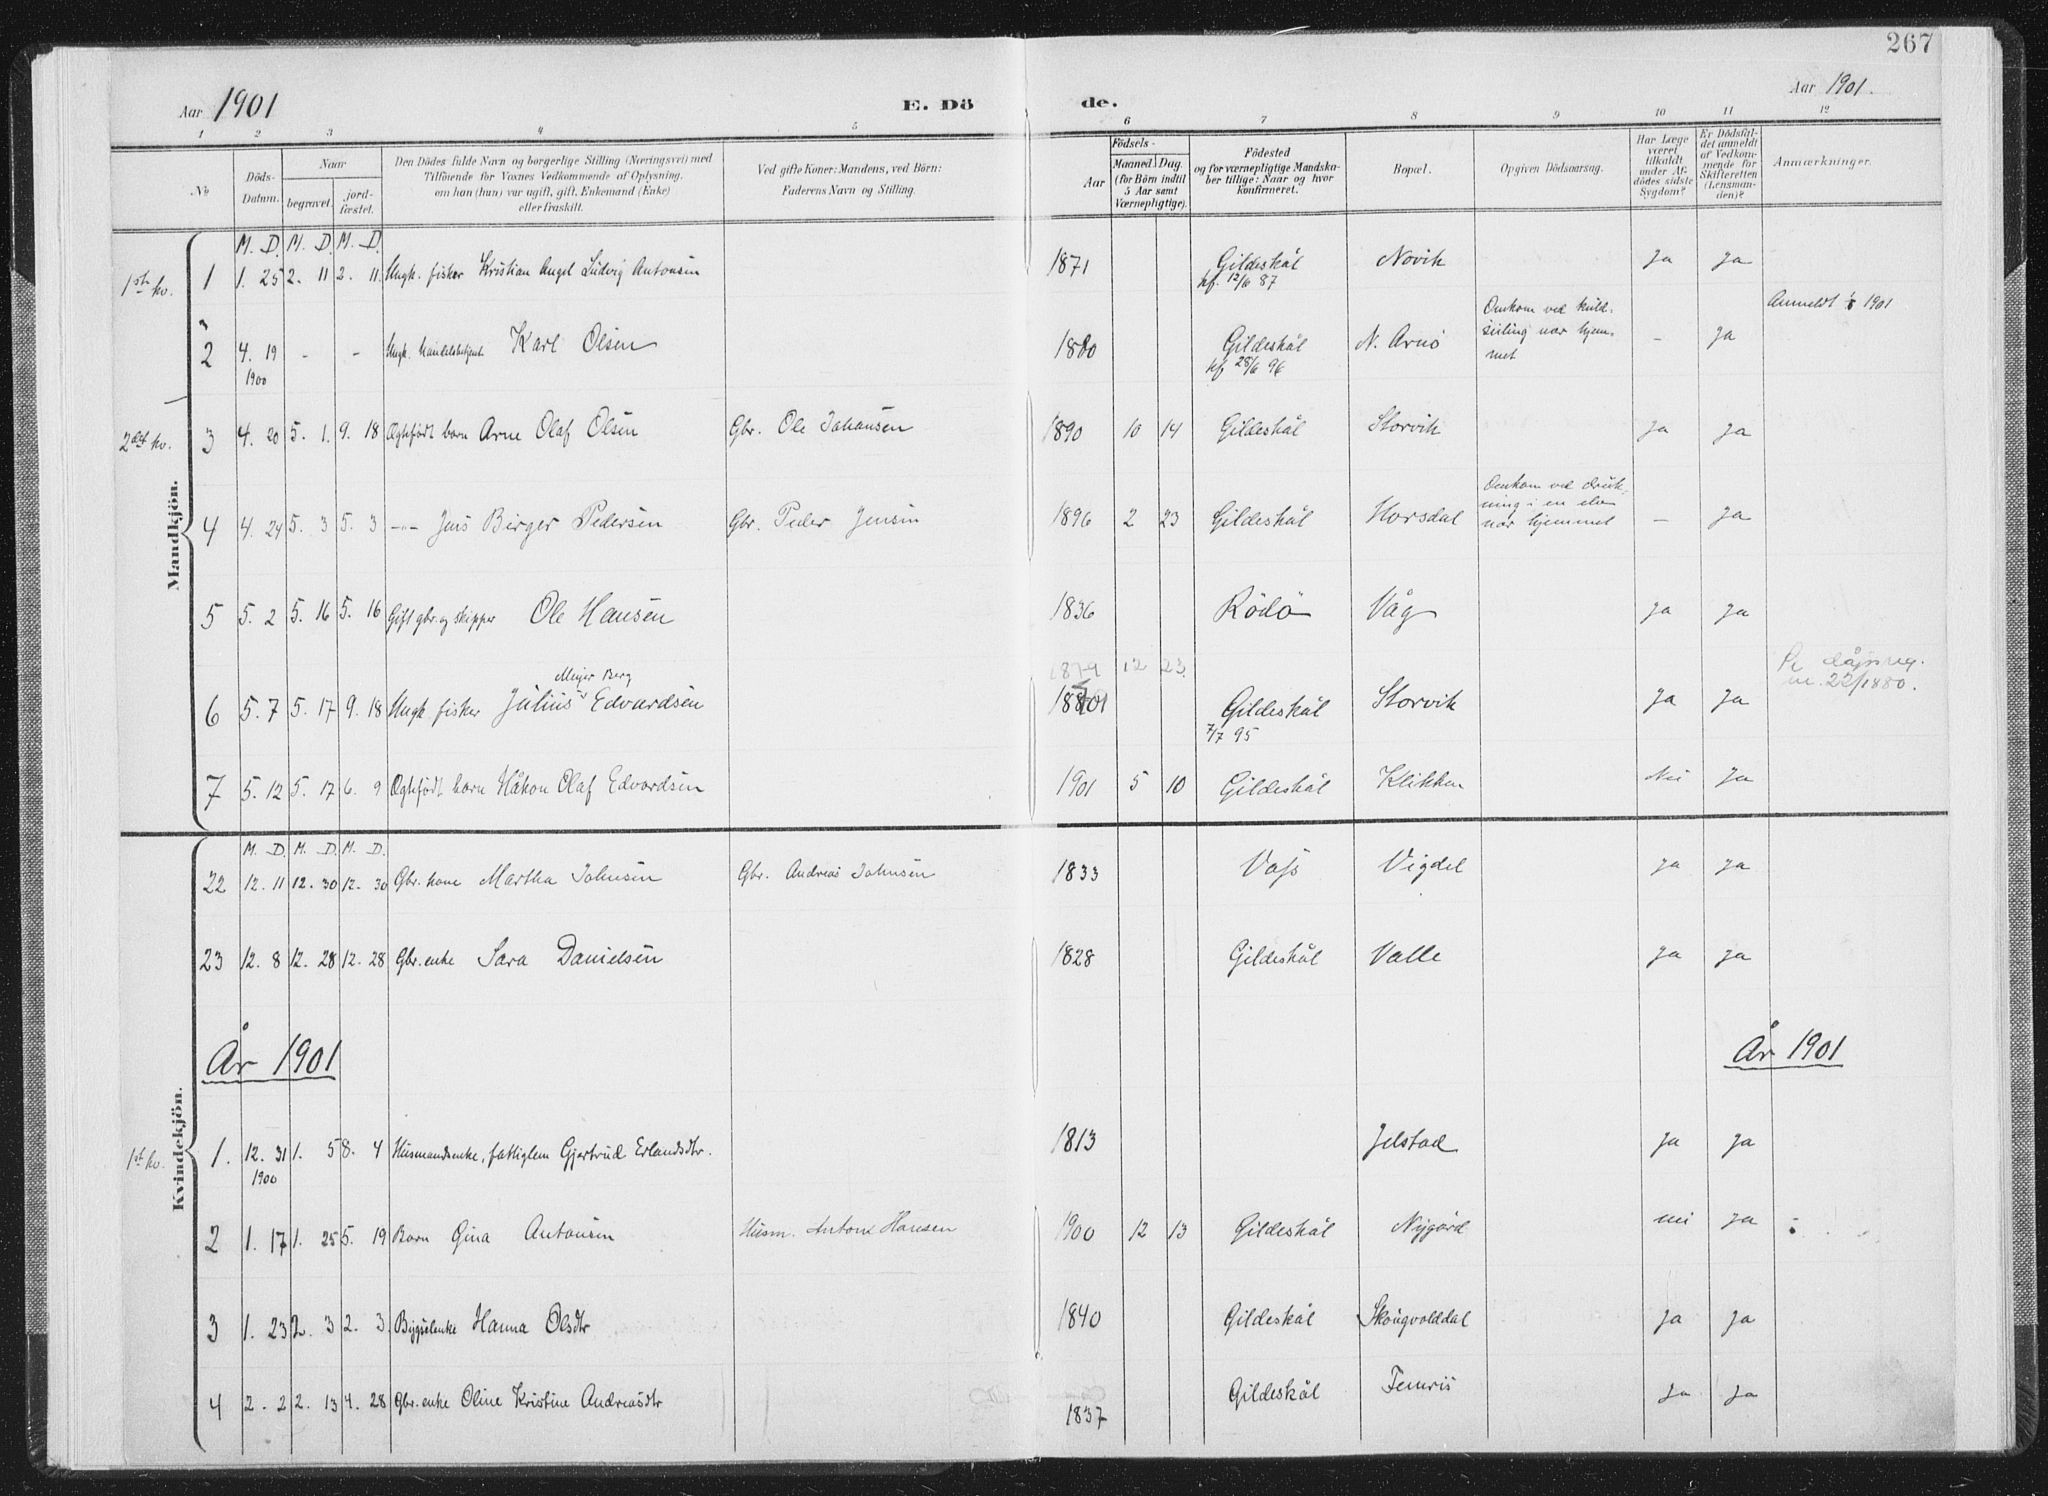 267
Aar 1901 E. Dö de. Aar 1901.
1 2 3 4 5 6 7 8 9 10 11 12
No
Döds-Datum.
Naar
begravet.
jord-fæstet.
Den Dödes fulde Navn og borgerlige Stilling (Næringsvei) med
Tilföiende for Voxnes Vedkommende af Oplysning,
om han (hun) var ugift, gift, Enkemand (Enke)
eller fraskilt.
Ved gifte Koner: Mandens, ved Börn:
Faderens Navn og Stilling.
Födsels-
Aar
Maaned. Dag.
(for Börn indtil
5 Aar samt
Værnepligtige).
Födested
og for værnepligtige Mandska-
ber tillige: Naar og hvor
konfirmeret.
Bopæl.
Opgiven Dödsaarsag.
Har Læge
været
tilkaldt
under Af-
dödes sidste
Sygdom?
Er Dödsfal-
det anmeldt
af Vedkom-
mende for
Skifteretten
(Lensman-
den)?
Anmærkninger.
Mandkjön.
M. D. M. D. M. D.
1ste kv. 1 1. 25 2. 11 2. 11. Ungk. fisker Kristian Angel Ludvig Antonsen 1871 Gildeskål Novik Ja Ja
kf. 12/6 87
Anmeldt 1901
2 4. 19 - - Ungk. handelsbetjent Karl Olsen 1880 Gildeskål N. Arnö Omkom ved kuld- - Ja
seiling nær hjem-
met
1900 kf 28/6 96
2det kv. 3 4. 20 5. 1. 9. 18 Ægtefödt barn Arne Olaf Olsen Gbr. Ole Johansen 1890 10 14 Gildeskål Storvik Ja Ja
4 4. 24 5. 3 5. 3 -"- Jens Birger Pedersen Gbr. Peder Jensen 1896 2 23 Gildeskål Horsdal Omkom ved druk- - Ja
ning i en elv
nær hjemmet
5 5. 2 5. 16 5. 16 Gift gbr. og skipper Ole Hansen 1836 Rödö Våg Ja Ja
Meyer Berg 1879 12 23.
nr. 22/1880.
6 5. 7 5. 17 9. 18 Ungk fisker Julius Edvardsen Gildeskål Storvik Ja Ja
7/7 95
7 5. 12 5. 17 6. 9 Ægtefödt barn Håkon Olaf Edvardsen 1901 5 10 Gildeskål Klikken Nei Ja
Kvindekjön.
M. D. M. D. M. D.
22 12. 11 12. 30 12. 30 Gbr. kone Martha Johnsen Gbr. Andreas Johnsen 1833 Vafs Vigdel Ja Ja
23 12. 8 12. 28 12. 28 Gbr. enke Sara Danielsen 1828 Gildeskål Valle Ja Ja
År 1901 År 1901
1ste kv. 1. 12. 31 1. 5 8. 4 Husmandsenke, fattiglem Gjertrud Erlandsdtr. 1813 Jelstad Ja Ja
1900
2 1. 17 1. 25 5. 19 Barn Gina Antonsen Husm. Anton Hansen 1900 12 13 Gildeskål Nygård nei Ja
3 1. 23 2. 3 2. 3. Bygselenke Hanna Olsdtr 1840 Gildeskål Skougvolddal Ja Ja
4 2. 2 2. 13 4. 28 Gbr. enke Oline Kristine Andreasdtr 1837 Gildeskål Femris Ja Ja